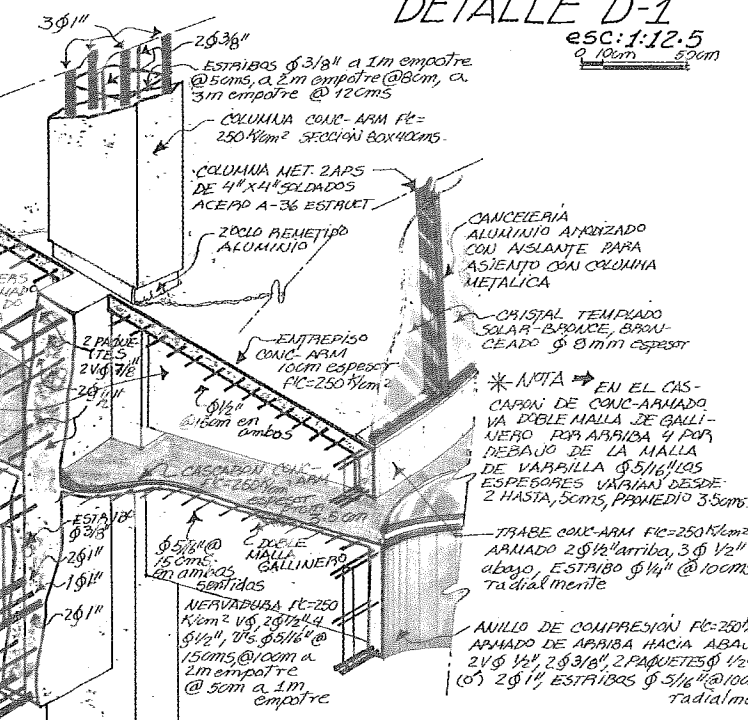 DETALLE D-1
esc: 1:12.5
0 10cm 50cm
3∅1"
2∅3/8"
ESTRIBOS ∅3/8" a 1m empotre
@5cms, a 2m empotre @8cm, a
3m empotre @ 12cms
COLUMNA CONC-ARM F'C=
250 K/cm² SECCION 80x40cms.
COLUMNA MET. 2APS
DE 4"X4" SOLDADOS
ACERO A-36 ESTRUCT
ZOCLO REMETIDO
ALUMINIO
CANCELERIA
ALUMINIO ANODIZADO
CON AISLANTE PARA
ASIENTO CON COLUMNA
METALICA
CRISTAL TEMPLADO
SOLAR-BRONCE, BRON-
CEADO ∅ 8mm espesor
ENTREPISO
CONC-ARM
10cm espesor
F'C=250 K/cm²
2 PAQUE-
TES
2V∅7/8"
∅1/2"
@15cm en
ambos
* NOTA ⇒ EN EL CAS-
CARON DE CONC-ARMADO
VA DOBLE MALLA DE GALLI-
NERO POR ARRIBA Y POR
DEBAJO DE LA MALLA
DE VARRILLA ∅5/16" LOS
ESPESORES VARIAN DESDE
2 HASTA, 5cms, PROMEDIO 3.5cms.
CASCARON CONC-ARM
F'C=250K/cm
espesor
3.5cm
ESTRIB
∅3/8"
2∅1"
1∅1"
2∅1"
∅5/16"@
15cms.
en ambos
sentidos
DOBLE
MALLA
GALLINERO
TRABE CONC-ARM F'C=250K/cm²
ARMADO 2∅1/2" arriba, 3∅ 1/2"
abajo, ESTRIBO ∅1/4" @10cms
radialmente
NERVADURA F'C=250
K/cm² V∅, 2∅7/8" 4
∅1/2", ∅5/16"@
15cms, @10cm a
2m empotre
@ 5cm a 1m
empotre
ANILLO DE COMPRESION F'C=250
ARMADO DE ARRIBA HACIA ABAJ
2V∅ 1/2", 2∅3/8", 2 PAQUETES∅ 1/2
(ó) 2∅1", ESTRIBOS ∅5/16"@10c
radialme